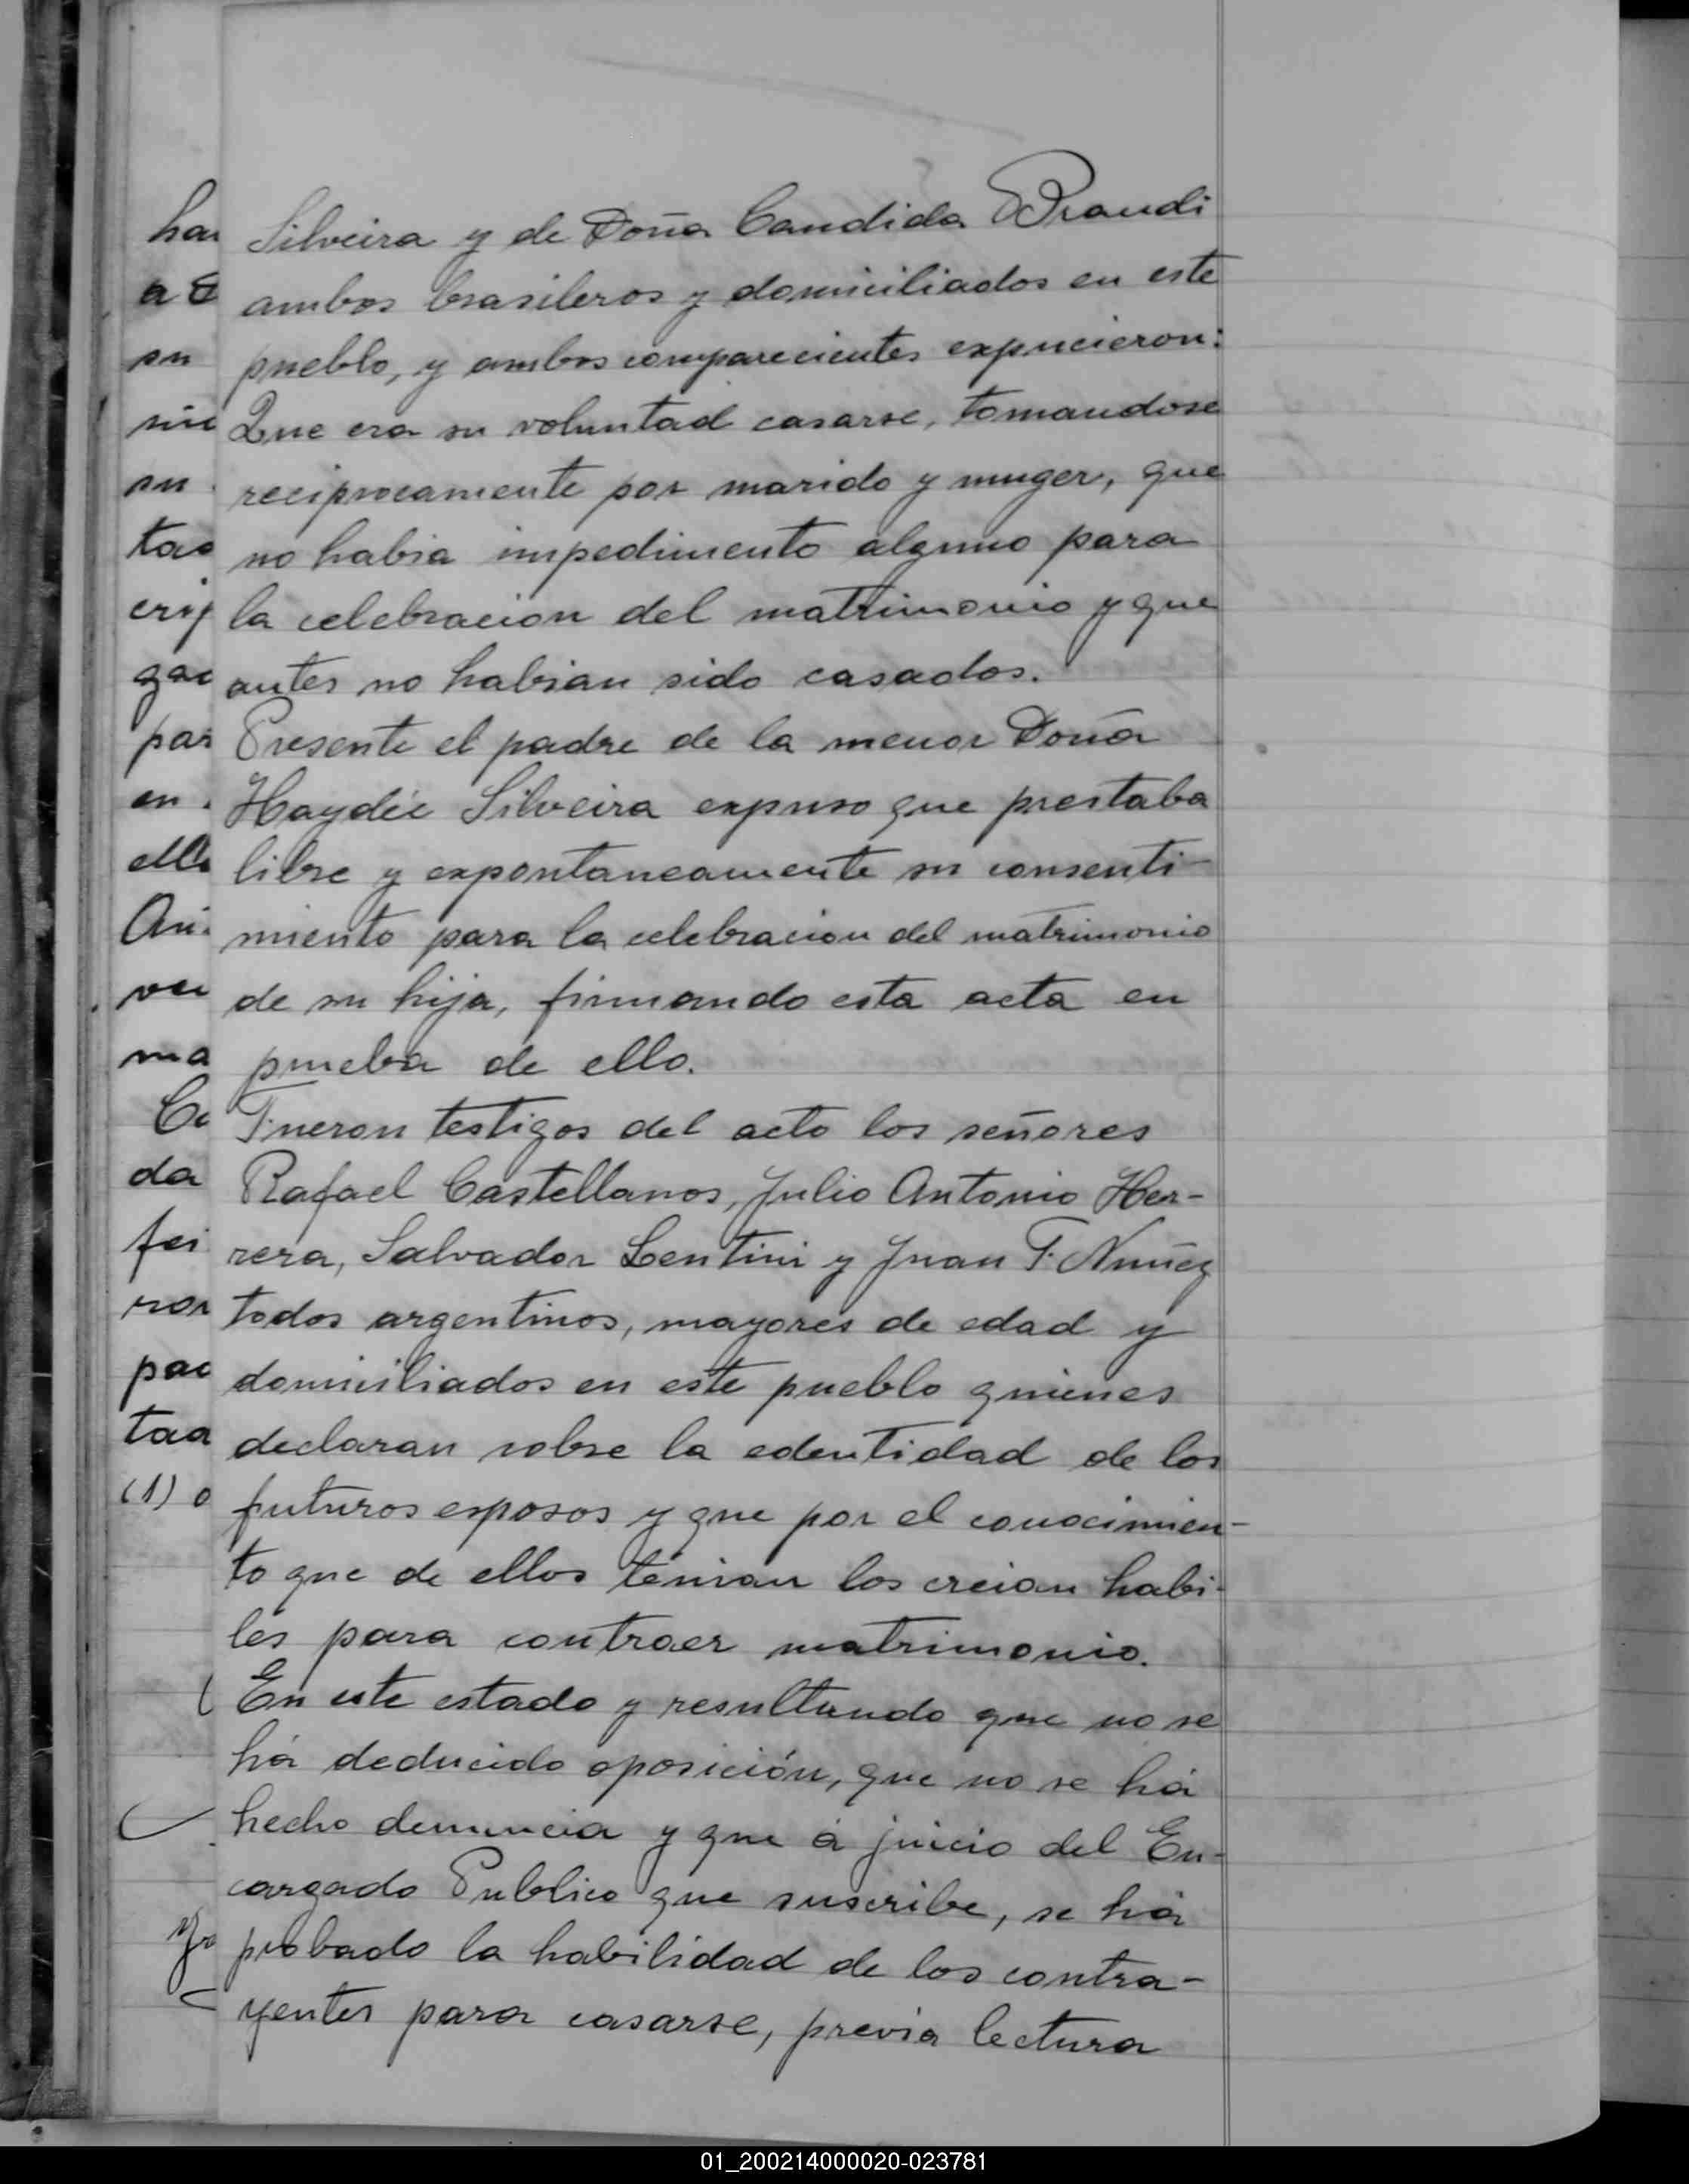 Silveira y de Doña Candida Brandi
ambos brasileros y domiciliados en este
pueblo, y ambos comparecientes expucieron:
Que era su voluntad casarse, tomandose
reciprocamente por marido y muger, que
no habia impedimento alguno para
la celebracion del matrimonio y que
antes no habian sido casados.
Presente el padre de la menor Doña
Haydée Silveira expuso que prestaba
libre y expontaneamente su consenti-
miento para la celebracion del matrimonio
de su hija, firmando esta acta en
prueba de ello.
Fueron testigos del acto los señores
Rafael Castellanos, Julio Antonio Her-
rera, Salvador Lentini y Juan F. Nuñez
todos argentinos, mayores de edad y
domiciliados en este pueblo quienes
declaran sobre la edentidad de los
futuros esposos y que por el conocimien-
to que de ellos tenian los creian habi-
les para contraer matrimonio.
En este estado y resultando que no se
há deducido oposición, que no se há
hecho denuncia y que á juicio del En-
cargado Publico que suscribe, se há
probado la habilidad de los contra-
yentes para casarse, previa lectura
01_200214000020-023781